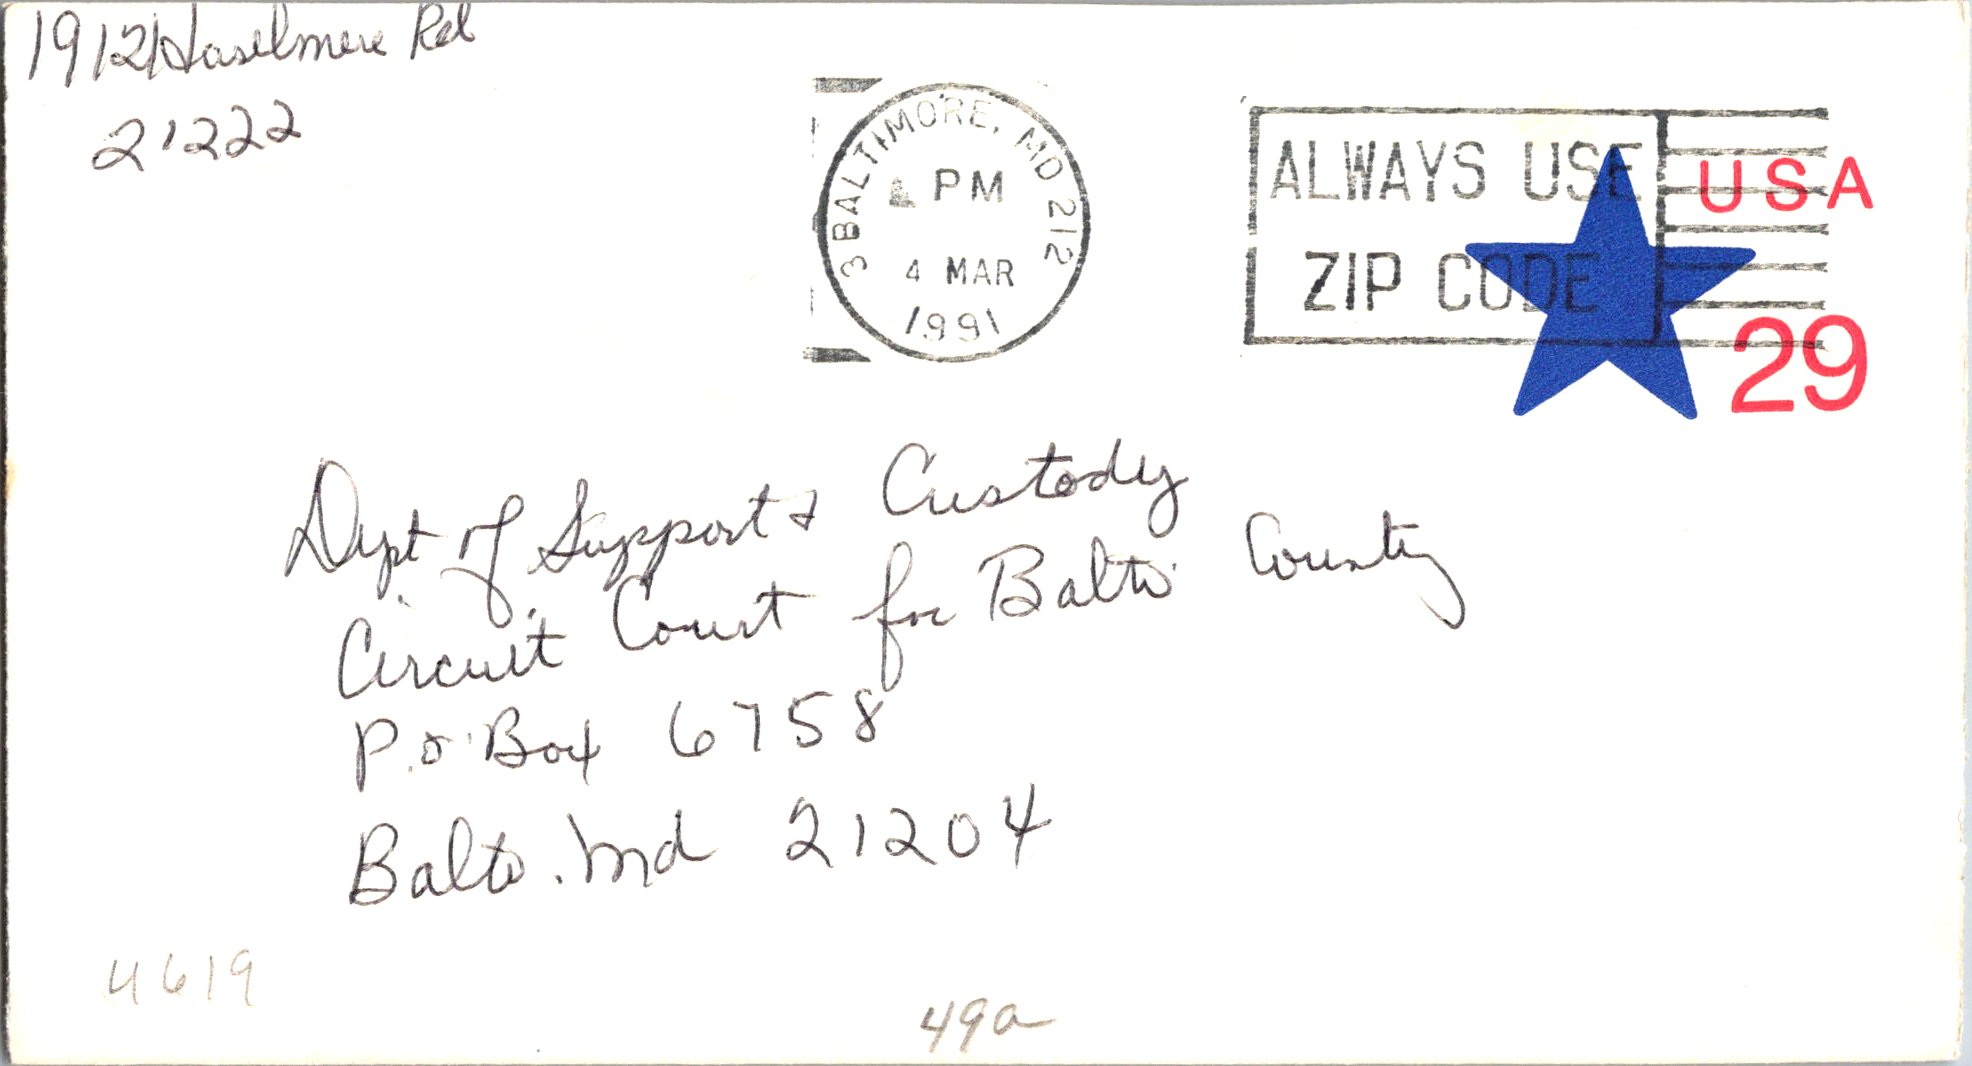 1912 Haselmere Rd
21222
3 BALTIMORE, MD 212
PM
4 MAR
1991
ALWAYS USE
ZIP CODE
USA
29
Dept of Support & Custody
Circuit Court for Balto. County
P.O. Box 6758
Balto. Md 21204
4619
49a